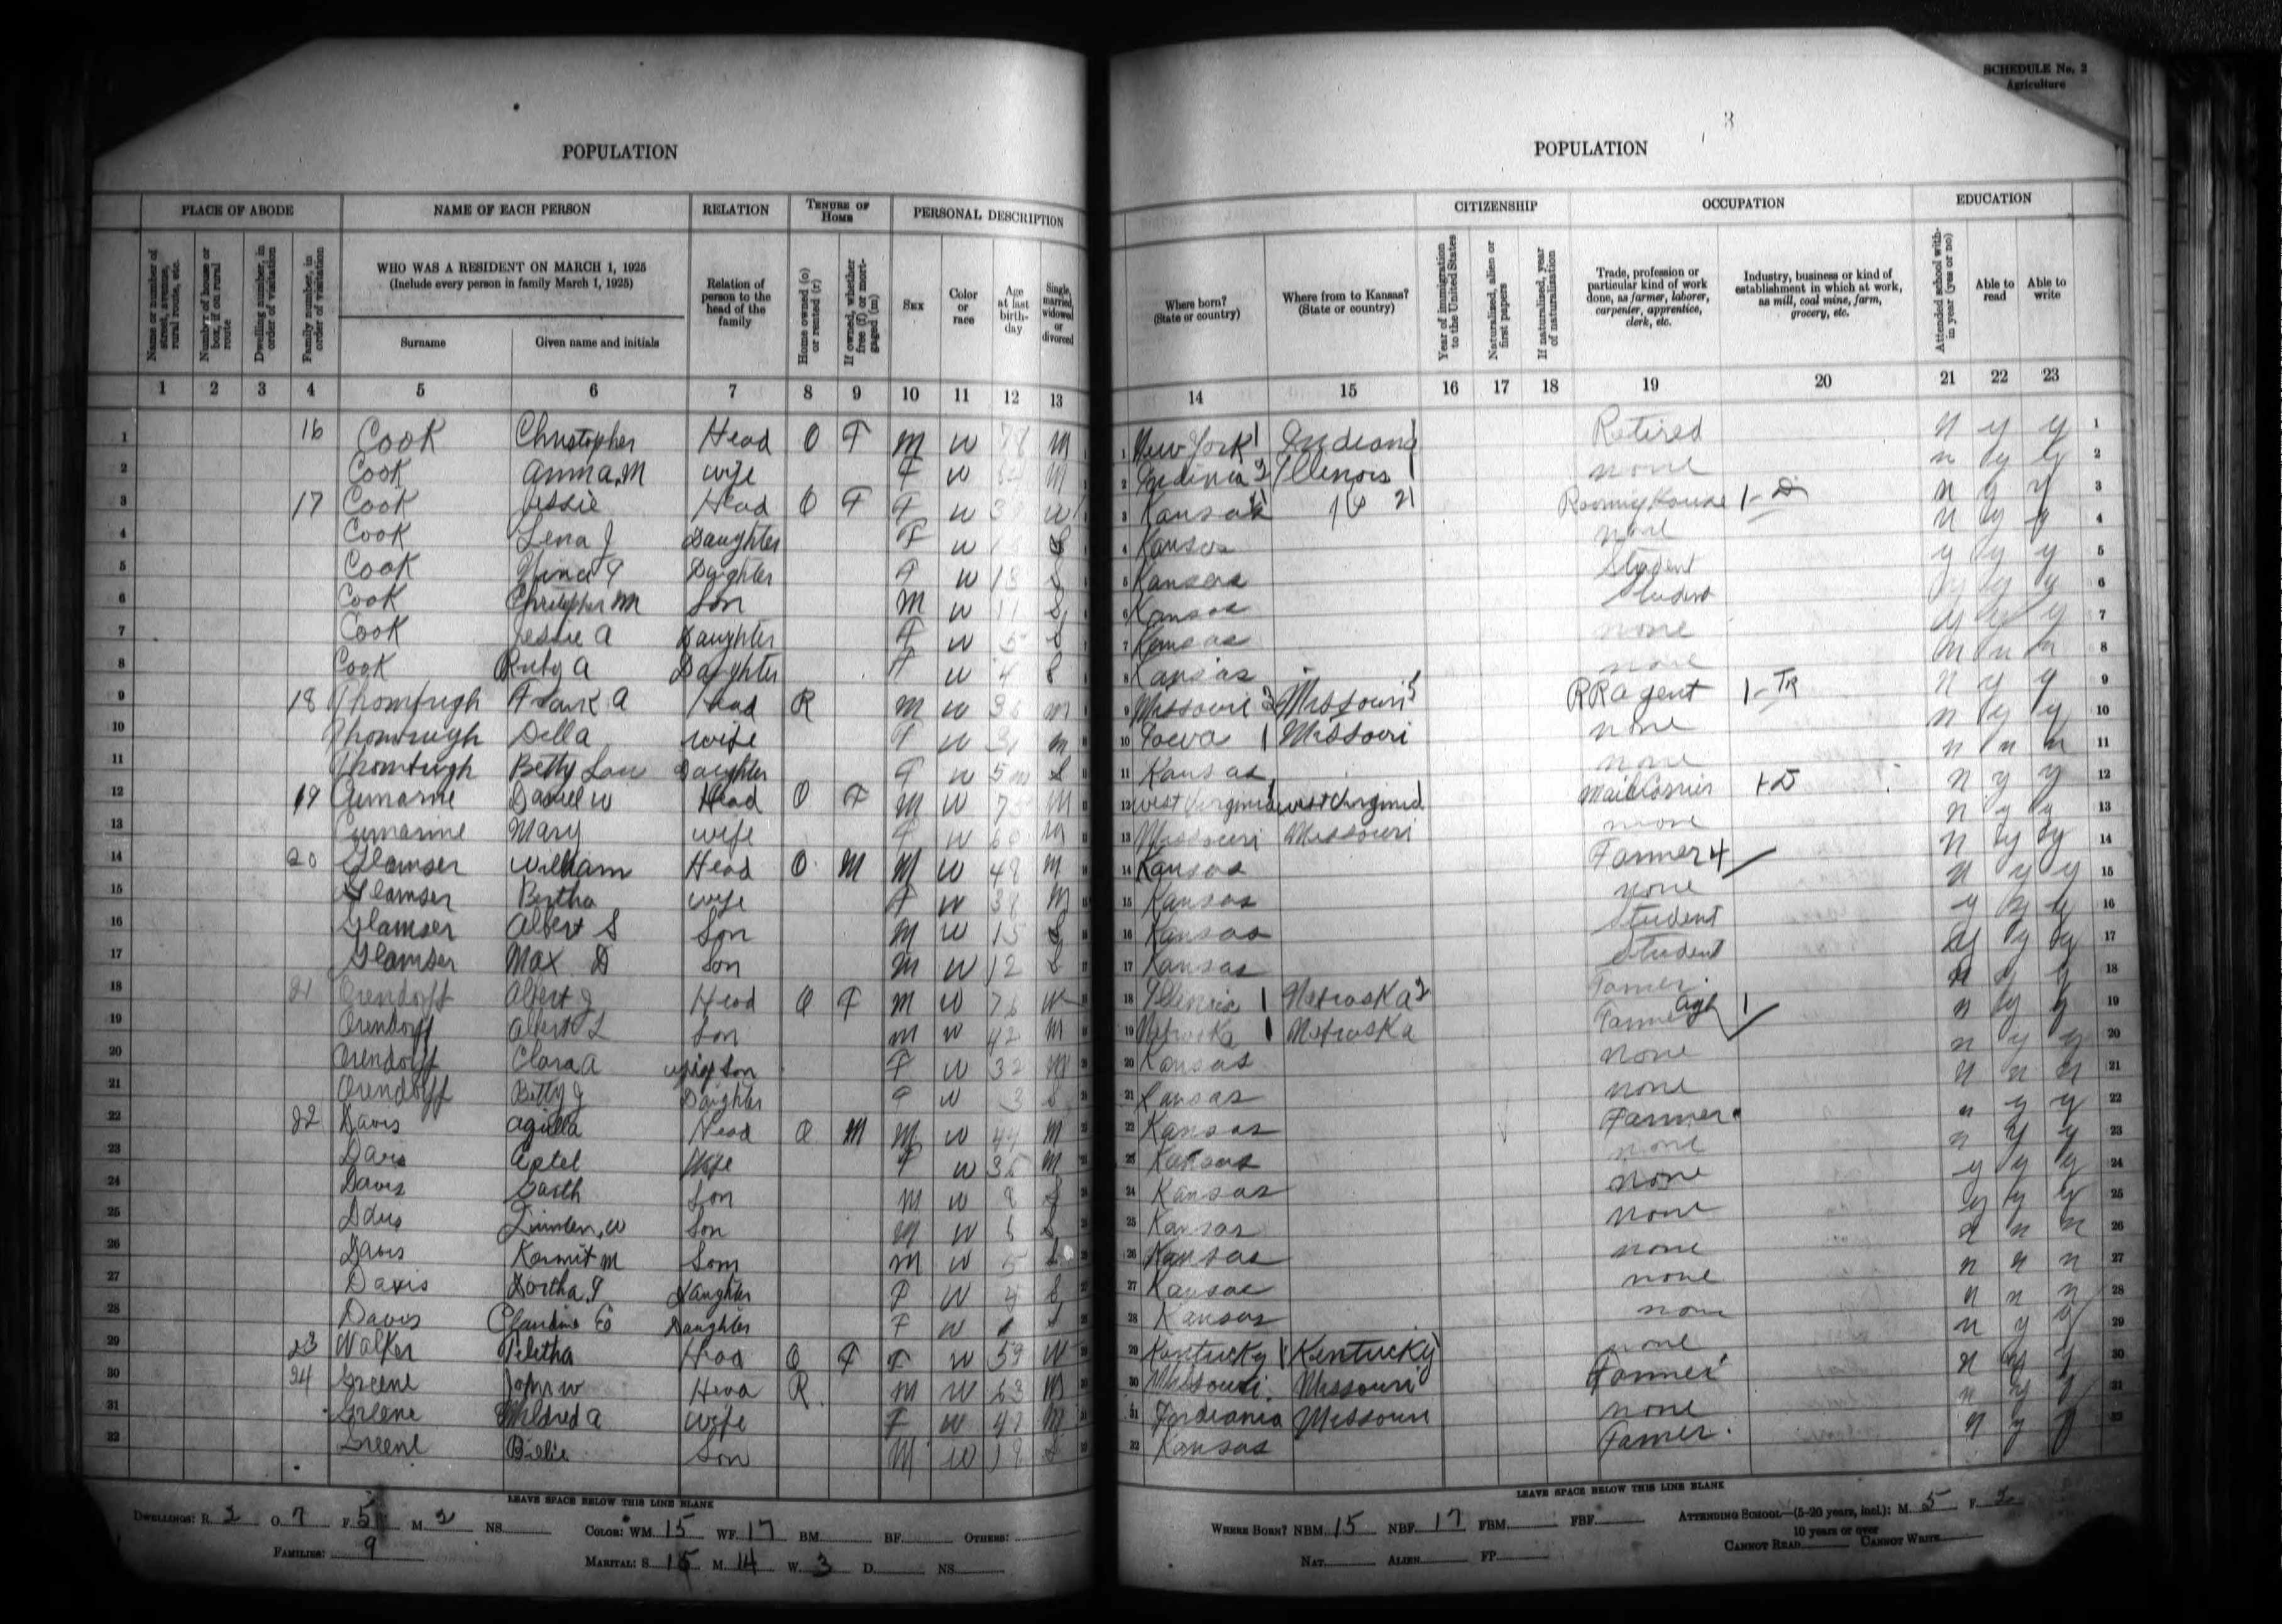 SCHEDULE No. 3
Agriculture
3
POPULATION
POPULATION
PLACE OF ABODE NAME OF EACH PERSON RELATION TENURE OF HOME PERSONAL DESCRIPTION CITIZENSHIP OCCUPATION EDUCATION
Name or number of street, avenue, rural route, etc.
Number of house or box, if on rural route
Dwelling number, in order of visitation
Family number, in order of visitation
WHO WAS A RESIDENT ON MARCH 1, 1925
(Include every person in family March 1, 1925)
Surname Given name and initials
Relation of person to the head of the family
Home owned (o) or rented (r)
If owned, whether free (f) or mortgaged (m)
SEX
Color or race
Age at last birthday
Single, married, widowed or divorced
Where born? (State or country)
Where from to Kansas? (State or country)
Year of immigration to the United States
Naturalized, alien or first papers
If naturalized, year of naturalization
Trade, profession or particular kind of work done, as farmer, laborer, carpenter, apprentice, clerk, etc.
Industry, business or kind of establishment in which at work, as mill, coal mine, farm, grocery, etc.
Attended school within year (yes or no)
Able to read
Able to write
1 2 3 4 5 6 7 8 9 10 11 12 13 14 15 16 17 18 19 20 21 22 23
1 16 Cook Christopher Head O F M W 78 M New York Indiana Retired n y y
2 Cook Anna M wife F W 64 M Indiana Illinois none n y y
3 17 Cook Jessie Head O F F W W Kansas Rooming House n y y
4 Cook Lena J Daughter F W S Kansas none n y y
5 Cook Daughter F W 13 S Kansas Student y y y
6 Cook Christopher M Son M W 11 S Kansas Student y y y
7 Cook Jessie A Daughter F W 5 S Kansas none y y y
8 Cook Ruby A Daughter F W 4 S Kansas none n n n
9 18 Frank A Head R M W 36 M Missouri Missouri RR agent 1-TR n y y
10 Della wife F W M Iowa Missouri none n y y
11 Betty Lou Daughter F W 5m S Kansas none n n n
12 19 Daniel W Head O F M W M West Virginia West Virginia Mail Carrier n y y
13 Mary wife F W M Missouri Missouri none n y y
14 20 Glamser William Head O M M W 48 M Kansas Farmer n y y
15 Glamser Bertha wife F W 38 M Kansas none n y y
16 Glamser Albert S Son M W 15 S Kansas Student y y y
17 Glamser Max D Son M W 12 S Kansas Student y y y
18 21 Orendorff Albert J Head O F M W 76 W Illinois Nebraska Farmer n y y
19 Orendorff Albert L Son M W 42 M Nebraska Nebraska Farmer n y y
20 Orendorff Clara A wife of son F W 32 M Kansas none n y y
21 Orendorff Betty J Daughter F W 3 S Kansas none n n n
22 22 Davis Head O M M W 44 M Kansas Farmer n y y
23 Davis wife F W 36 M Kansas none n y y
24 Davis Garth Son M W 8 S Kansas none y y y
25 Davis Son M W 6 S Kansas none y y y
26 Davis Kermit M Son M W 5 S Kansas none n n n
27 Davis Daughter F W 4 S Kansas none n n n
28 Davis Claudine E Daughter F W S Kansas none n n n
29 23 Walker Head O F F W 59 W Kentucky Kentucky none n y y
30 24 Greene John W Head R M W 63 M Missouri Missouri Farmer n y y
31 Greene Mildred A wife F W 47 M Indiana Missouri none n y y
32 Greene Billie Son M W 19 S Kansas Farmer n y y
LEAVE SPACE BELOW THIS LINE BLANK
LEAVE SPACE BELOW THIS LINE BLANK
DWELLINGS: R. 2 O. 7 F. 5 M. 2 NS. COLOR: WM. 15 WF. 17 BM. BF. OTHERS:
FAMILIES: 9 MARITAL: S. 15 M. 14 W. 3 D. NS.
WHERE BORN? NBM. 15 NBF. 17 FBM. FBF. ATTENDING SCHOOL—(5-20 years, incl.): M. 5 F. 2
NAT. ALIEN. FP. 10 years or over CANNOT READ CANNOT WRITE